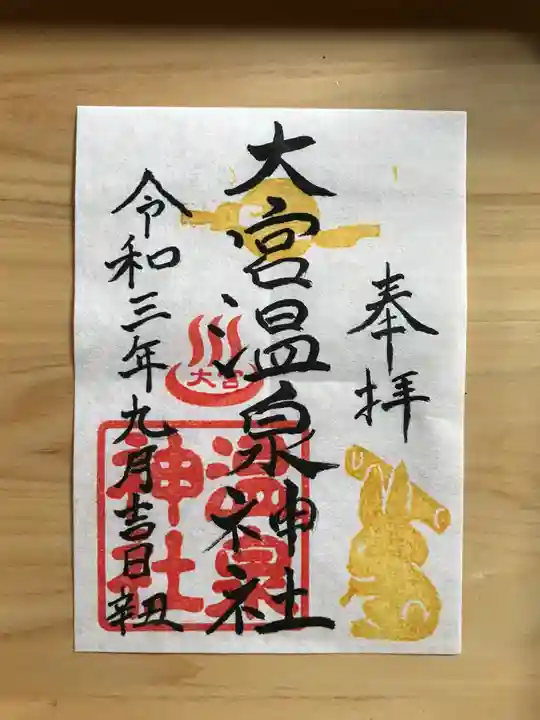 奉拝
大宮温泉神社
令和三年九月吉日辛丑
大宮
温泉
神社